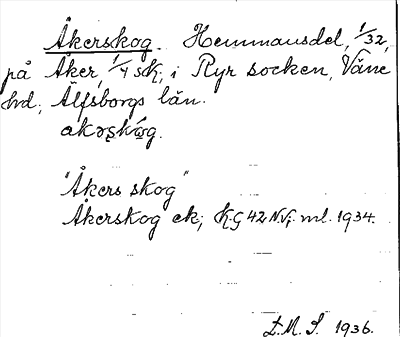 Åkerskog. Hemmansdel, 1/32,
på Åker, 1/4 sk; i Ryr socken, Väne
hd, Älfsborgs län.
akərskóg.
"Åkers skog"
Åkerskog ek; K.G 42 N.V; ml. 1934.
L.M.S. 1936.